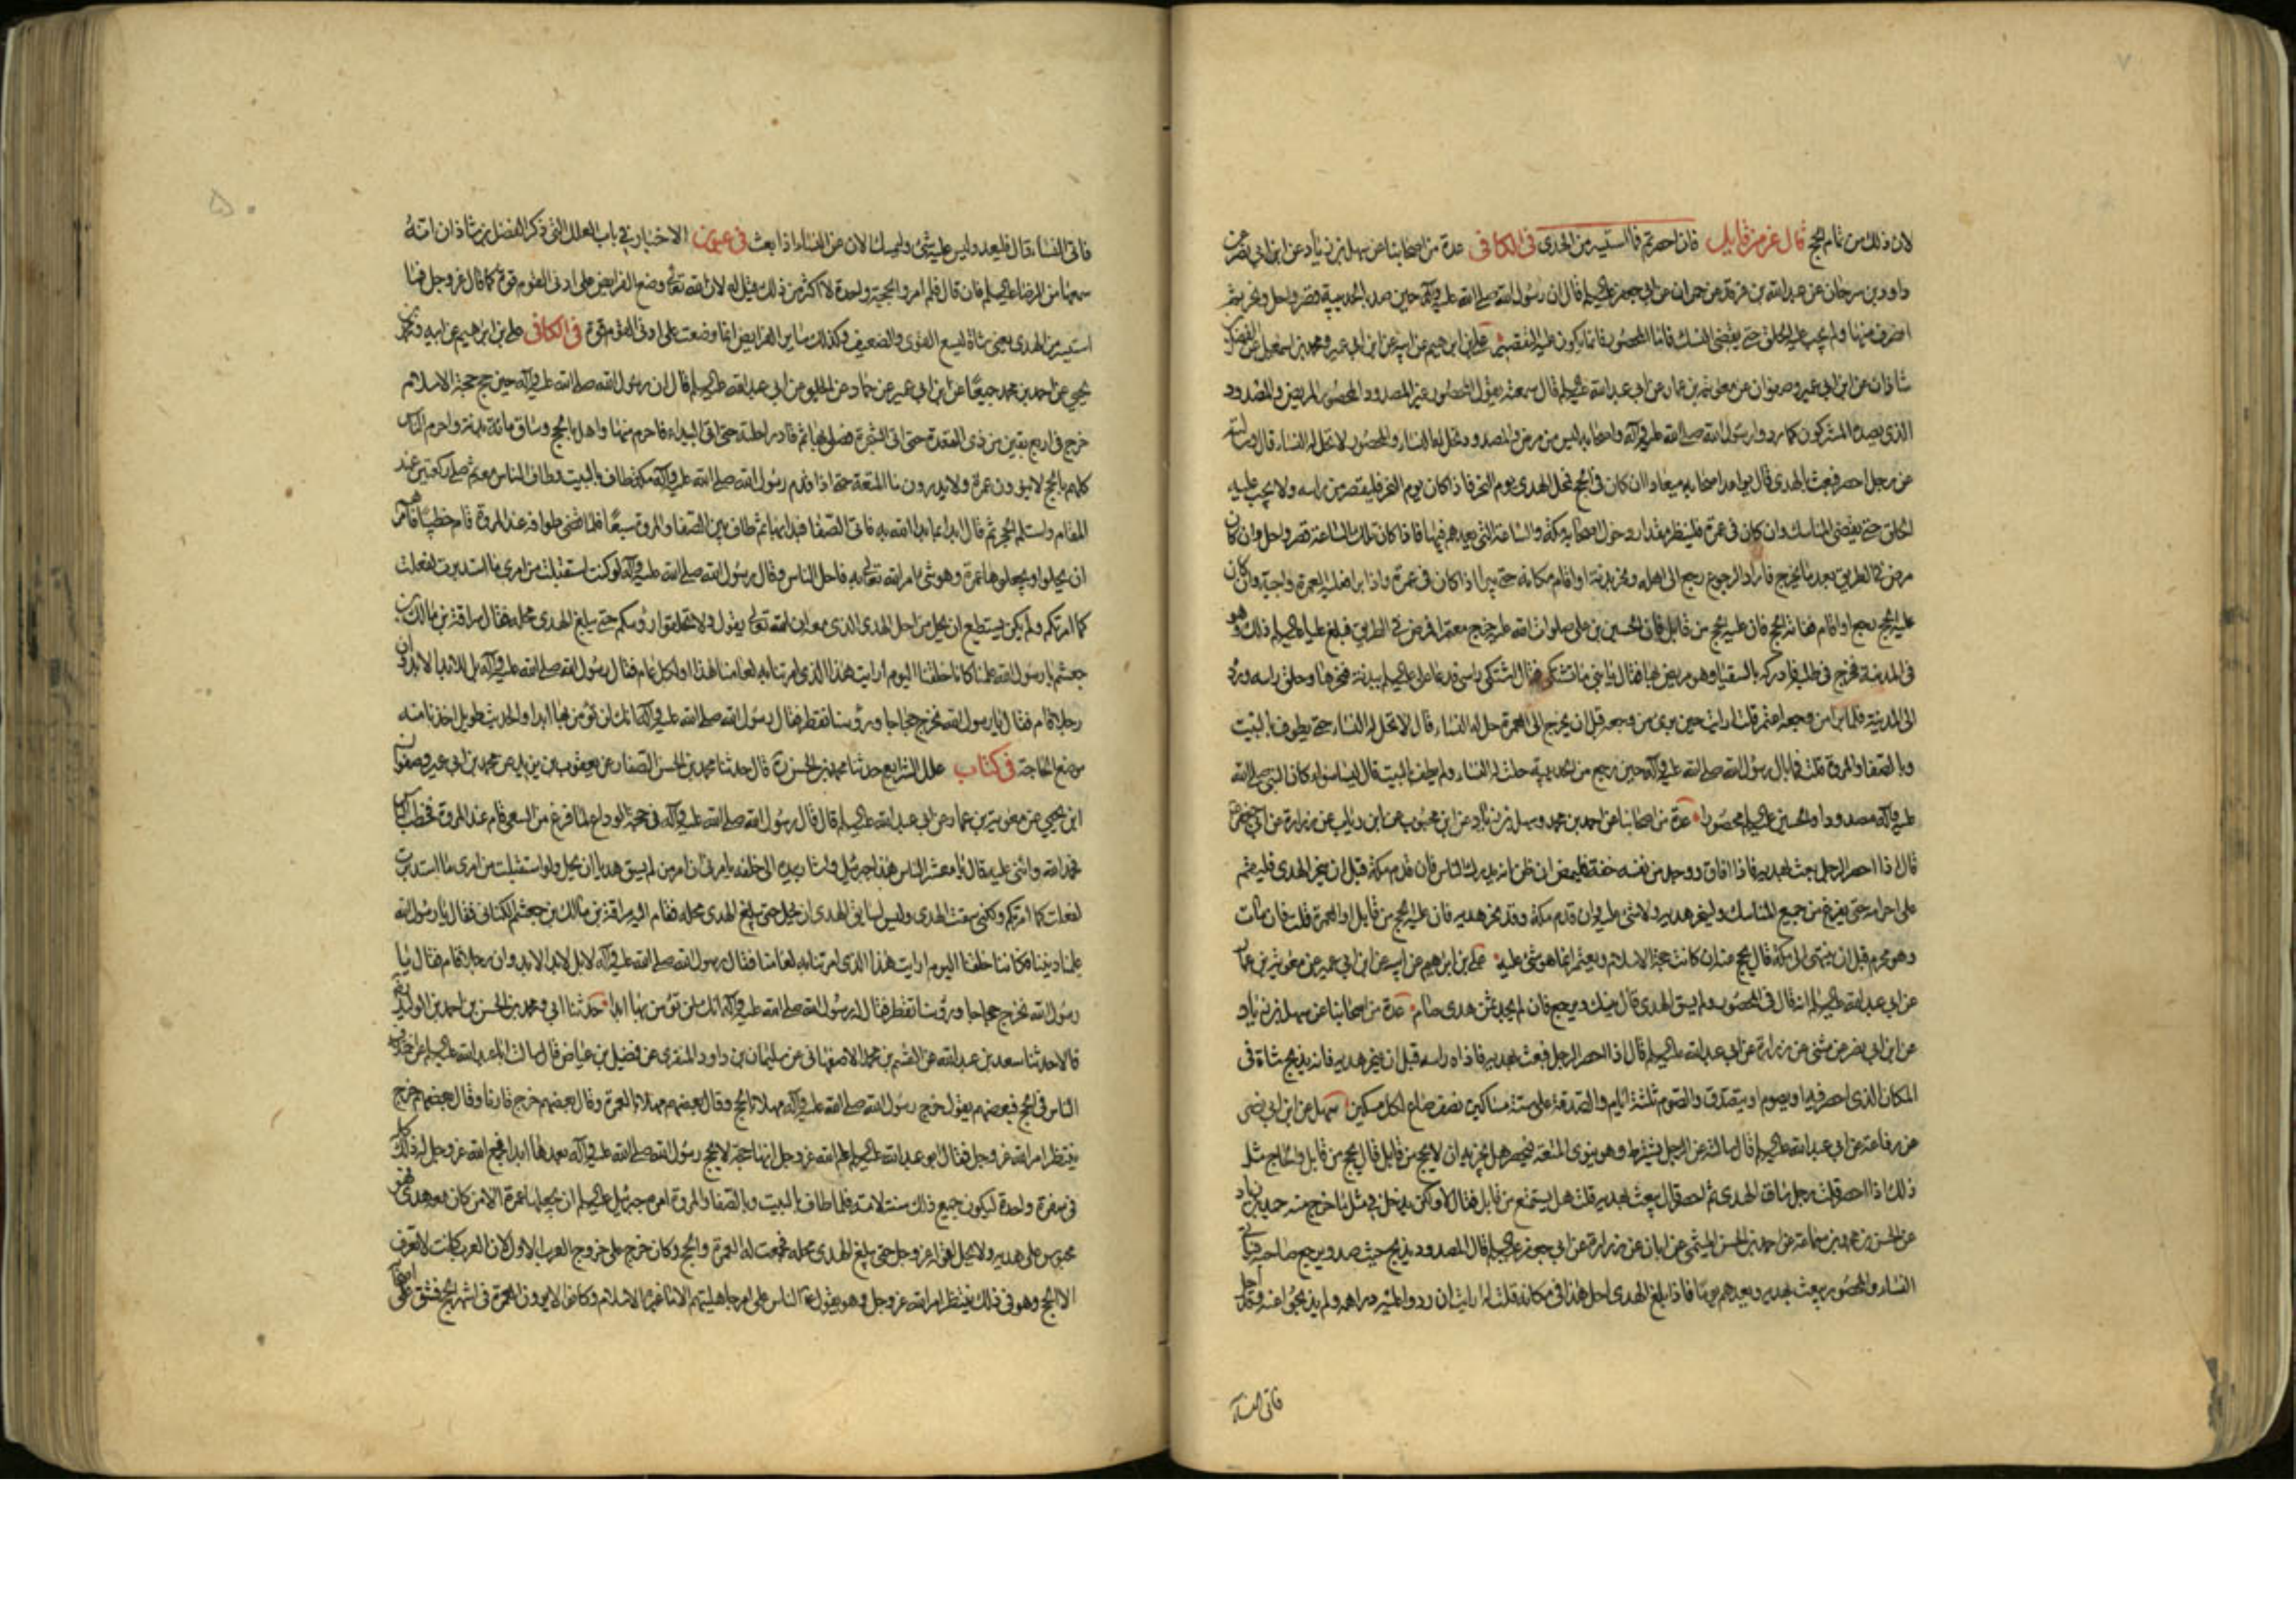 لان ذلك من تمام الحج قال عز من قايل فان احصرتم فما استيسر من الهدى فى الكافى عدة من اصحابنا عن سهل بن زياد عن ابن ابى نصر عن
داود بن سرحان عن عبد الله بن فرقد عن حمران عن ابى جعفر عليه السلم قال ان رسول الله صلى الله عليه وآله حين صد بالحديبية قصر واحل ونحر ثم
انصرف منها ولم يجب عليه الحلق حتى يقضى النسك فاما المحصور فانما يكون عليه التقصير على بن ابرهيم عن ابيه عن ابن ابى عمير ومحمد بن اسمعيل عن الفضل بن
شاذان عن ابن ابى عمير وصفوان عن معوية بن عمار عن ابى عبد الله عليه السلم قال سمعته يقول المحصور غير المصدود المحصور المريض والمصدود
الذى يصده المشركون كما ردوا رسول الله صلى الله عليه وآله واصحابه ليس من مرض والمصدود تحل له النساء والمحصور لا تحل له النساء قال وسالته
عن رجل احصر فبعث بالهدى قال يواعد اصحابه ميعادا ان كان فى الحج فمحل الهدى يوم النحر فاذا كان يوم النحر فليقصر من راسه ولا يجب عليه
الحلق حتى يقضى المناسك وان كان فى عمرة فلينظر مقدار دخول اصحابه مكة والساعة التى يعدهم فيها فاذا كان تلك الساعة قصر واحل وان كان
مرض فى الطريق بعد ما يخرج فاراد الرجوع رجع الى اهله ونحر بدنة او اقام مكانه حتى يبرا اذا كان فى عمرة واذا برا فعليه العمرة واجبة وان كان
عليه الحج رجع او اقام ففاته الحج فان عليه الحج من قابل فان الحسين بن على صلوات الله عليه خرج معتمرا فمرض فى الطريق فبلغ عليا عليه السلم ذلك وهو
فى المدينة فخرج فى طلبه فادركه بالسقيا وهو مريض بها فقال يا بنى ما تشتكى فقال اشتكى راسى فدعا على عليه السلم ببدنة فنحرها وحلق راسه ورده
الى المدينة فلما برا من وجعه اعتمر قلت ارايت حين برى من وجعه قبل ان يخرج الى العمرة حل له النساء قال لا تحل له النساء حتى يطوف بالبيت
وبالصفا والمروة قلت فما بال رسول الله صلى الله عليه وآله حين رجع من الحديبية حلت له النساء ولم يطف بالبيت قال ليسا سواء كان النبى صلى الله
عليه وآله مصدودا والحسين عليه السلم محصورا عدة من اصحابنا عن احمد بن محمد وسهل بن زياد عن ابن محبوب عن ابن رئاب عن زرارة عن ابى جعفر
قال اذا احصر الرجل بعث بهديه فاذا افاق ووجد من نفسه خفة فليمض ان ظن انه يدرك الناس فان قدم مكة قبل ان ينحر الهدى فليقم
على احرامه حتى يفرغ من جميع المناسك ولينحر هديه ولا شئ عليه وان قدم مكة وقد نحر هديه فان عليه الحج من قابل او العمرة قلت فان مات
وهو محرم قبل ان ينتهى الى مكة قال يحج عنه ان كانت حجة الاسلام ويعتمر انما هو شئ عليه على بن ابرهيم عن ابيه عن ابن ابى عمير عن معوية بن عمار
عن ابى عبد الله عليه السلم انه قال فى المحصور ولم يسق الهدى قال ينسك ويرجع فان لم يجد ثمن هدى صام عدة من اصحابنا عن سهل بن زياد
عن ابن ابى نصر عن مثنى عن زرارة عن ابى عبد الله عليه السلم قال اذا احصر الرجل فبعث بهديه فاذاه راسه قبل ان ينحر هديه فانه يذبح شاة فى
المكان الذى احصر فيه او يصوم او يتصدق والصوم ثلثة ايام والصدقة على ستة مساكين نصف صاع لكل مسكين سهل عن ابن ابى نصر
عن رفاعة عن ابى عبد الله عليه السلم قال سالته عن الرجل يشترط وهو ينوى المتعة فيحصر هل يجزيه ان لا يحج من قابل قال يحج من قابل والحاج مثل
ذلك اذا احصر قلت رجل ساق الهدى ثم احصر قال يبعث بهديه قلت هل يستمتع من قابل فقال لا ولكن يدخل فى مثل ما خرج منه حميد بن زياد
عن الحسن بن محمد بن سماعة عن احمد بن الحسن الميثمى عن ابان عن زرارة عن ابى جعفر عليه السلم قال المصدود يذبح حيث صد ويرجع صاحبه فياتى
النساء والمحصور يبعث بهديه ويعدهم يوما فاذا بلغ الهدى احل هذا فى مكانه قلت له ارايت ان ردوا عليه دراهمه ولم يذبحوا عنه وقد احل
فاتى النساء
فاتى النساء قال فليعد وليس عليه شئ وليمسك الان عن النساء اذا بعث فى عيون الاخبار فى باب العلل التى ذكر الفضل بن شاذان انه
سمعها من الرضا عليه السلم فان قال فلم امروا بحجة واحدة لا اكثر من ذلك قيل له لان الله تعالى وضع الفرايض على ادنى القوم قوة كما قال عز وجل فما
استيسر من الهدى يعنى شاة ليسع القوى والضعيف وكذلك ساير الفرايض انما وضعت على ادنى القوم قوة فى الكافى على بن ابرهيم عن ابيه ومحمد بن
يحيى عن احمد بن محمد جميعا عن ابن ابى عمير عن حماد عن الحلبى عن ابى عبد الله عليه السلم قال ان رسول الله صلى الله عليه وآله حين حج حجة الاسلام
خرج فى اربع بقين من ذى القعدة حتى اتى الشجرة فصلى بها ثم قاد راحلته حتى اتى البيداء فاحرم منها واهل بالحج وساق مائة بدنة واحرم الناس
كلهم بالحج لا ينوون عمرة ولا يدرون ما المتعة حتى اذا قدم رسول الله صلى الله عليه وآله مكة طاف بالبيت وطاف الناس معه ثم صلى ركعتين عند
المقام واستلم الحجر ثم قال ابدا بما بدا الله به فاتى الصفا فبدا بها ثم طاف بين الصفا والمروة سبعا فلما قضى طوافه عند المروة قام خطيبا فامرهم
ان يحلوا ويجعلوها عمرة وهو شئ امر الله تعالى به فاحل الناس وقال رسول الله صلى الله عليه وآله لو كنت استقبلت من امرى ما استدبرت لفعلت
كما امرتكم ولم يكن يستطيع ان يحل من اجل الهدى الذى معه ان الله تعالى يقول ولا تحلقوا رؤسكم حتى يبلغ الهدى محله فقال سراقة بن مالك بن
جعشم يا رسول الله علمنا كانا خلقنا اليوم ارايت هذا الذى امرتنا به لعامنا هذا او لكل عام فقال رسول الله صلى الله عليه وآله بل للابد الابد وان
رجلا قام فقال يا رسول الله نخرج حجاجا ورؤسنا تقطر فقال رسول الله صلى الله عليه وآله انك لن تؤمن بها ابدا والحديث طويل اخذنا منه
موضع الحاجة فى كتاب علل الشرايع حدثنا محمد بن الحسن ره قال حدثنا محمد بن الحسن الصفار عن يعقوب بن يزيد عن محمد بن ابى عمير وصفوان
ابن يحيى عن معوية بن عمار عن ابى عبد الله عليه السلم قال قال رسول الله صلى الله عليه وآله فى حجة الوداع لما فرغ من السعى قام عند المروة فخطب الناس
فحمد الله واثنى عليه فقال يا معشر الناس هذا جبرئيل واشار بيده الى خلفه يامرنى ان امر من لم يسق هديا ان يحل ولو استقبلت من امرى ما استدبرت
لفعلت كما امرتكم ولكنى سقت الهدى وليس لسايق الهدى ان يحل حتى يبلغ الهدى محله فقام اليه سراقة بن مالك بن جعشم الكنانى فقال يا رسول الله
علمنا ديننا فكاننا خلقنا اليوم ارايت هذا الذى امرتنا به لعامنا فقال رسول الله صلى الله عليه وآله لا بل لابد الابد وان رجلا قام فقال يا
رسول الله نخرج حجاجا ورؤسنا تقطر فقال له رسول الله صلى الله عليه وآله انك لن تؤمن بها ابدا حدثنا ابى ومحمد بن الحسن بن احمد بن الوليد
قالا حدثنا سعد بن عبد الله عن القسم بن محمد الاصفهانى عن سليمان بن داود المنقرى عن فضيل بن عياض قال سالت ابا عبد الله عليه السلم عن اختلاف
الناس فى الحج فبعضهم يقول خرج رسول الله صلى الله عليه وآله مهلا بالحج وقال بعضهم مهلا بالعمرة وقال بعضهم خرج قارنا وقال بعضهم خرج
ينتظر امر الله عز وجل فقال ابو عبد الله عليه السلم علم الله عز وجل انها حجة لا يحج رسول الله صلى الله عليه وآله بعدها ابدا فجمع الله عز وجل له ذلك كله
فى سفرة واحدة ليكون جميع ذلك سنة لامته فلما طاف بالبيت وبالصفا والمروة امره جبرئيل عليه السلم ان يجعلها عمرة الا من كان معه هدى فهو
محبوس على هديه ولا يحل لقوله عز وجل حتى يبلغ الهدى محله فجمعت له العمرة والحج وكان خرج على خروج العرب الاول لان العرب كانت لا تعرف
الا الحج وهو فى ذلك ينتظر امر الله عز وجل وهو يقول الناس على امر جاهليتهم الا ما غيره الاسلام وكانوا لا يرون العمرة فى اشهر الحج فشق على اصحابه